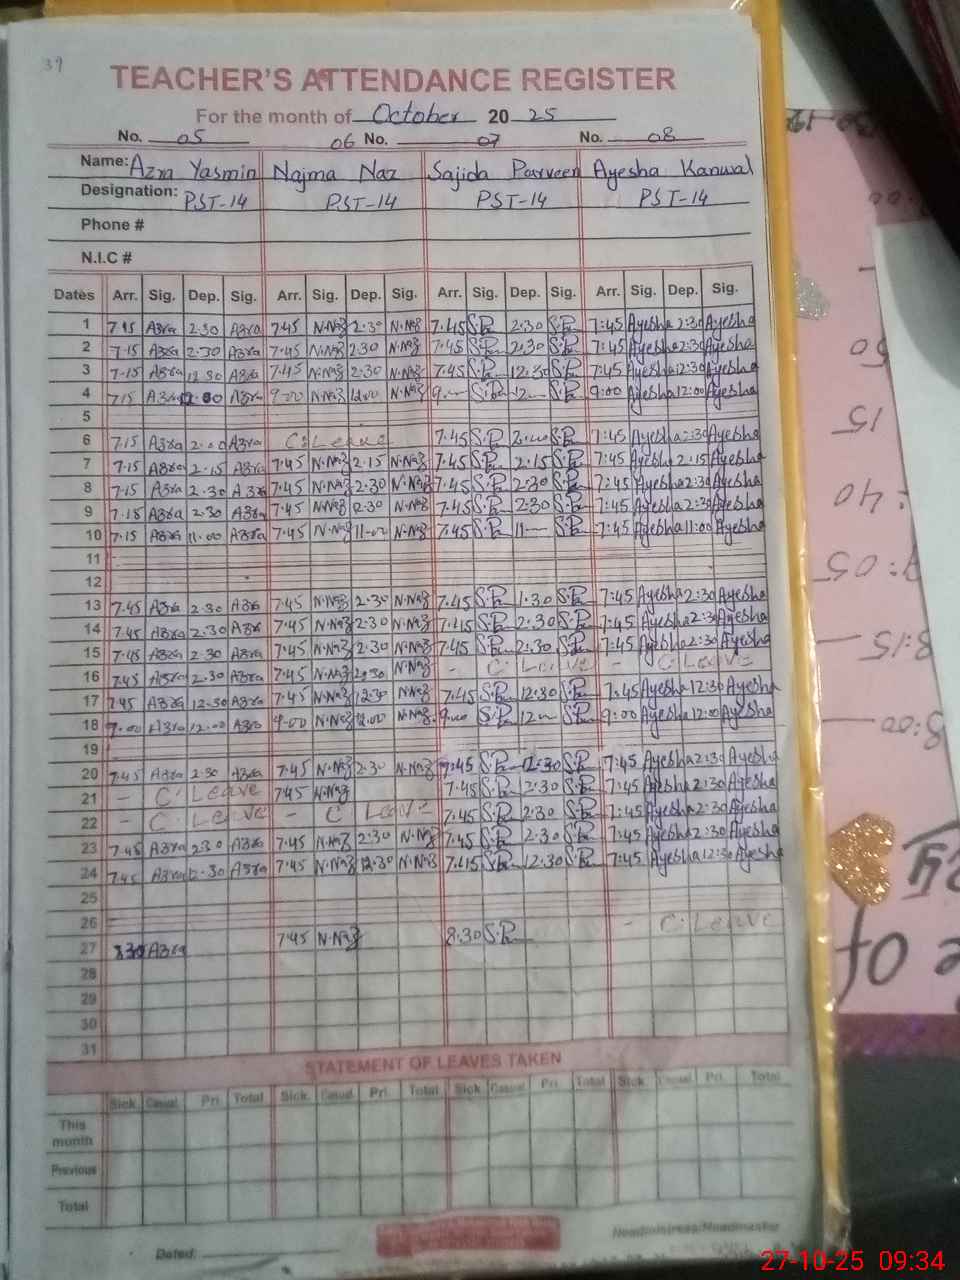 39
TEACHER'S ATTENDANCE REGISTER
For the month of October 20 25
No. 05 06 No. 07 No. 08
Name: Azra Yasmin Najma Naz Sajida Parveen Ayesha Kanwal
Designation: PST-14 PST-14 PST-14 PST-14
Phone #
N.I.C #
Dates Arr. Sig. Dep. Sig. Arr. Sig. Dep. Sig. Arr. Sig. Dep. Sig. Arr. Sig. Dep. Sig.
1 7.15 Azra 2.30 Azra 7.45 N.Naz 2.30 N.Naz 7.45 2.30 7:45 Ayesha 2:30 Ayesha
2 7.15 Azra 2.30 Azra 7.45 N.Naz 2.30 N.Naz 7.45 2.30 7:45 Ayesha 2:30 Ayesha
3 7.15 Azra 12.30 Azra 7.45 N.Naz 2.30 N.Naz 7.45 12.30 7:45 Ayesha 12:30 Ayesha
4 7.15 Azra Azra 9.00 N.Naz 12.00 N.Naz 9 12 9:00 Ayesha 12:00 Ayesha
5
6 7.15 Azra 2.00 Azra C.Leave 7.45 7:45 Ayesha Ayesha
7 7.15 Azra 2.15 Azra 7.45 N.Naz 2.15 N.Naz 7.45 2.15 7:45 Ayesha 2:15 Ayesha
8 7.15 Azra 2.30 Azra 7.45 N.Naz 2.30 N.Naz 7.45 2.30 7:45 Ayesha 2:30 Ayesha
9 7.15 Azra 2.30 Azra 7.45 N.Naz 2.30 N.Naz 7.45 2.30 7:45 Ayesha 2:30 Ayesha
10 7.15 Azra 11.00 Azra 7.45 N.Naz 11.00 N.Naz 7.45 11 7:45 Ayesha 11:00 Ayesha
11
12
13 7.45 Azra 2.30 Azra 7.45 N.Naz 2.30 N.Naz 7.45 1.30 7:45 Ayesha 2:30 Ayesha
14 7.45 Azra 2.30 Azra 7.45 N.Naz 2.30 N.Naz 7.45 2.30 7:45 Ayesha 2:30 Ayesha
15 7.45 Azra 2.30 Azra 7.45 N.Naz 2.30 N.Naz 7.45 2.30 7:45 Ayesha 2:30 Ayesha
16 7.45 Azra 2.30 Azra 7.45 N.Naz 2.30 N.Naz - C.Leave - C.Leave
17 7.45 Azra 12.30 Azra 7.45 N.Naz 12.30 N.Naz 7.45 12.30 7:45 Ayesha 12:30 Ayesha
18 7.00 Azra 12.00 Azra 9.00 N.Naz 12.00 N.Naz 9 12 9:00 Ayesha 12:00 Ayesha
19
20 7.45 Azra 2.30 Azra 7.45 N.Naz 2.30 N.Naz 7.45 7:45 Ayesha 2:30 Ayesha
21 - C.Leave 7.45 N.Naz 7.45 2.30 7:45 Ayesha 2:30 Ayesha
22 - C.Leave - C Leave - 7.45 2.30 7:45 Ayesha 2:30 Ayesha
23 7.45 Azra 2.30 Azra 7.45 N.Naz 2.30 N.Naz 7.45 2.30 7:45 Ayesha 2:30 Ayesha
24 7.45 Azra 12.30 Azra 7.45 N.Naz 12.30 N.Naz 7.45 12.30 7:45 Ayesha 12:30 Ayesha
25
26
27 8.30 Azra 7.45 N.Naz 8.30 - C.Leave
28
29
30
31
STATEMENT OF LEAVES TAKEN
Sick Casual Pri. Total Sick Casual Pri. Total Sick Casual Pri. Total Sick Casual Pri. Total
This month
Previous
Total
Dated: Headmistress/Headmaster
27-10-25 09:34